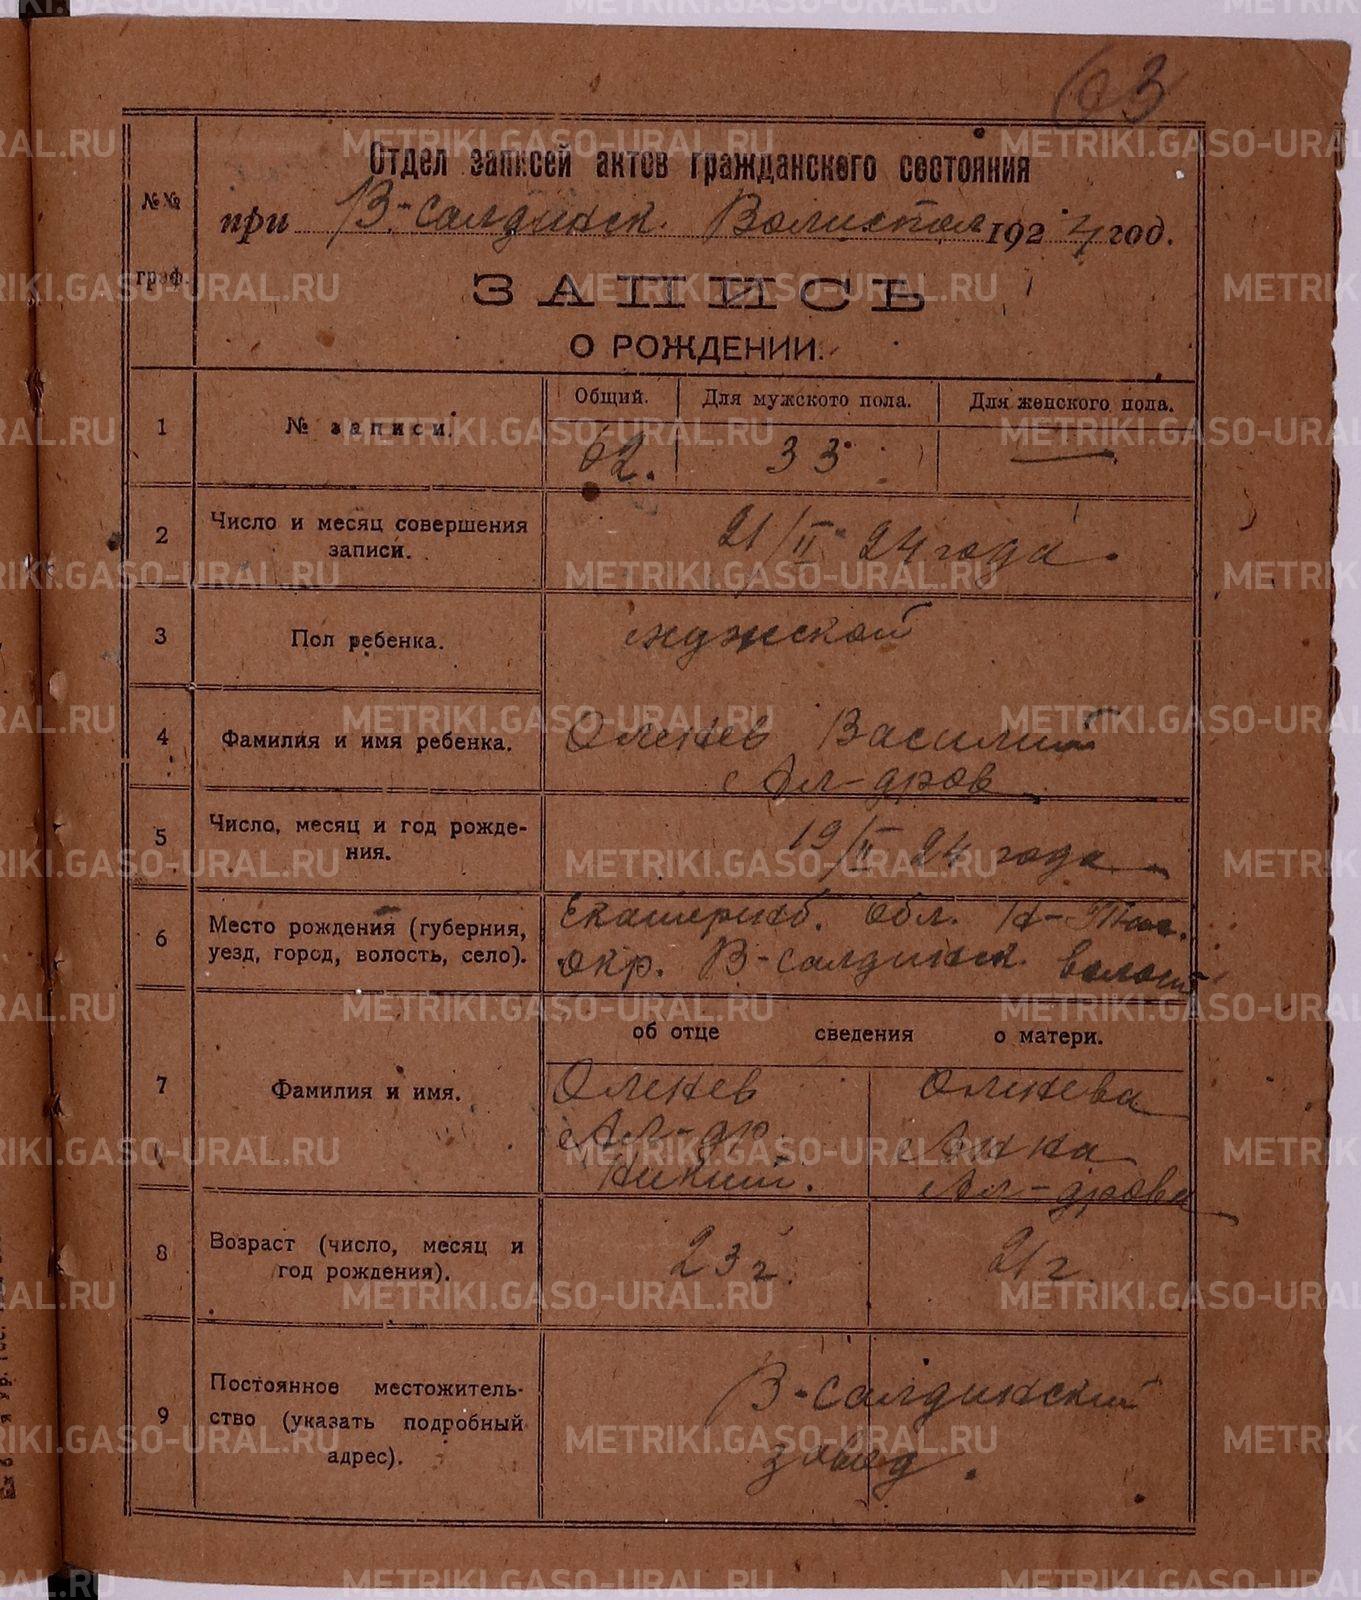 63
Отдел записей актов гражданского состояния
№№ граф.
при В-салдинск. Волисполк 1924 год.
ЗАПИСЬ
О РОЖДЕНИИ.
1 № записи. Общий. Для мужского пола. Для женского пола.
62. 33 —
2 Число и месяц совершения
записи.
21/II 24 года.
3 Пол ребенка. мужской
4 Фамилия и имя ребенка. Оленев Василий
Ал-дров
5 Число, месяц и год рожде-
ния.
19/II 24 года
6 Место рождения (губерния,
уезд, город, волость, село).
Екатеринб. обл. Н-Таг.
окр. В-салдинск волост
об отце сведения о матери.
7 Фамилия и имя.
Оленев Оленева
Ал-др Анна
Никит. Ал-дрова
8 Возраст (число, месяц и
год рождения).
23 г. 21 г.
9 Постоянное местожитель-
ство (указать подробный
адрес).
В-салдинский
завод.
METRIKI.GASO-URAL.RU